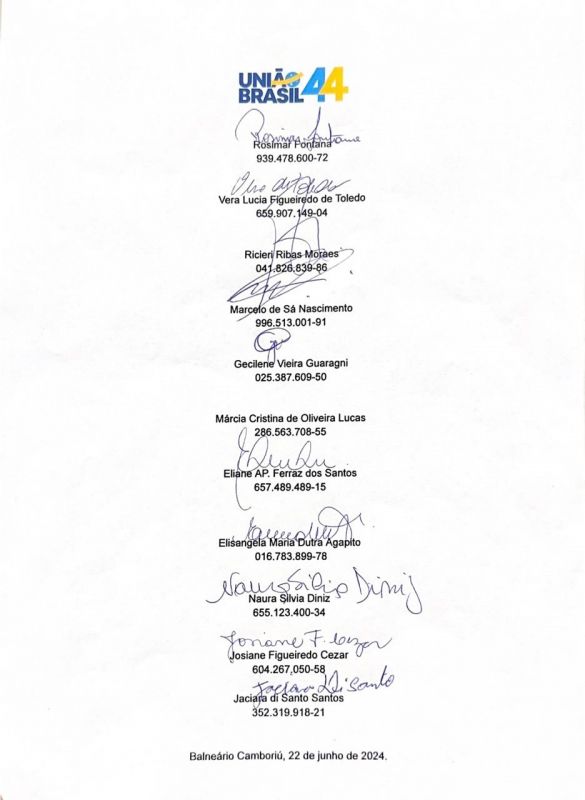 UNIÃO
BRASIL 44
Rosimar Fontana
Rosimar Fontana
939.478.600-72
Vera Lucia Figueiredo de Toledo
659.907.149-04
Ricieri Ribas Moraes
041.826.839-86
Marcelo de Sá Nascimento
996.513.001-91
Gecilene Vieira Guaragni
025.387.609-50
Márcia Cristina de Oliveira Lucas
286.563.708-55
Eliane AP. Ferraz dos Santos
657.489.489-15
Elisangela Maria Dutra Agapito
016.783.899-78
Naura Silvia Diniz
Naura Silvia Diniz
655.123.400-34
Josiane F. Cezar
Josiane Figueiredo Cezar
604.267.050-58
Jaciara di Santo Santos
352.319.918-21
Balneário Camboriú, 22 de junho de 2024.